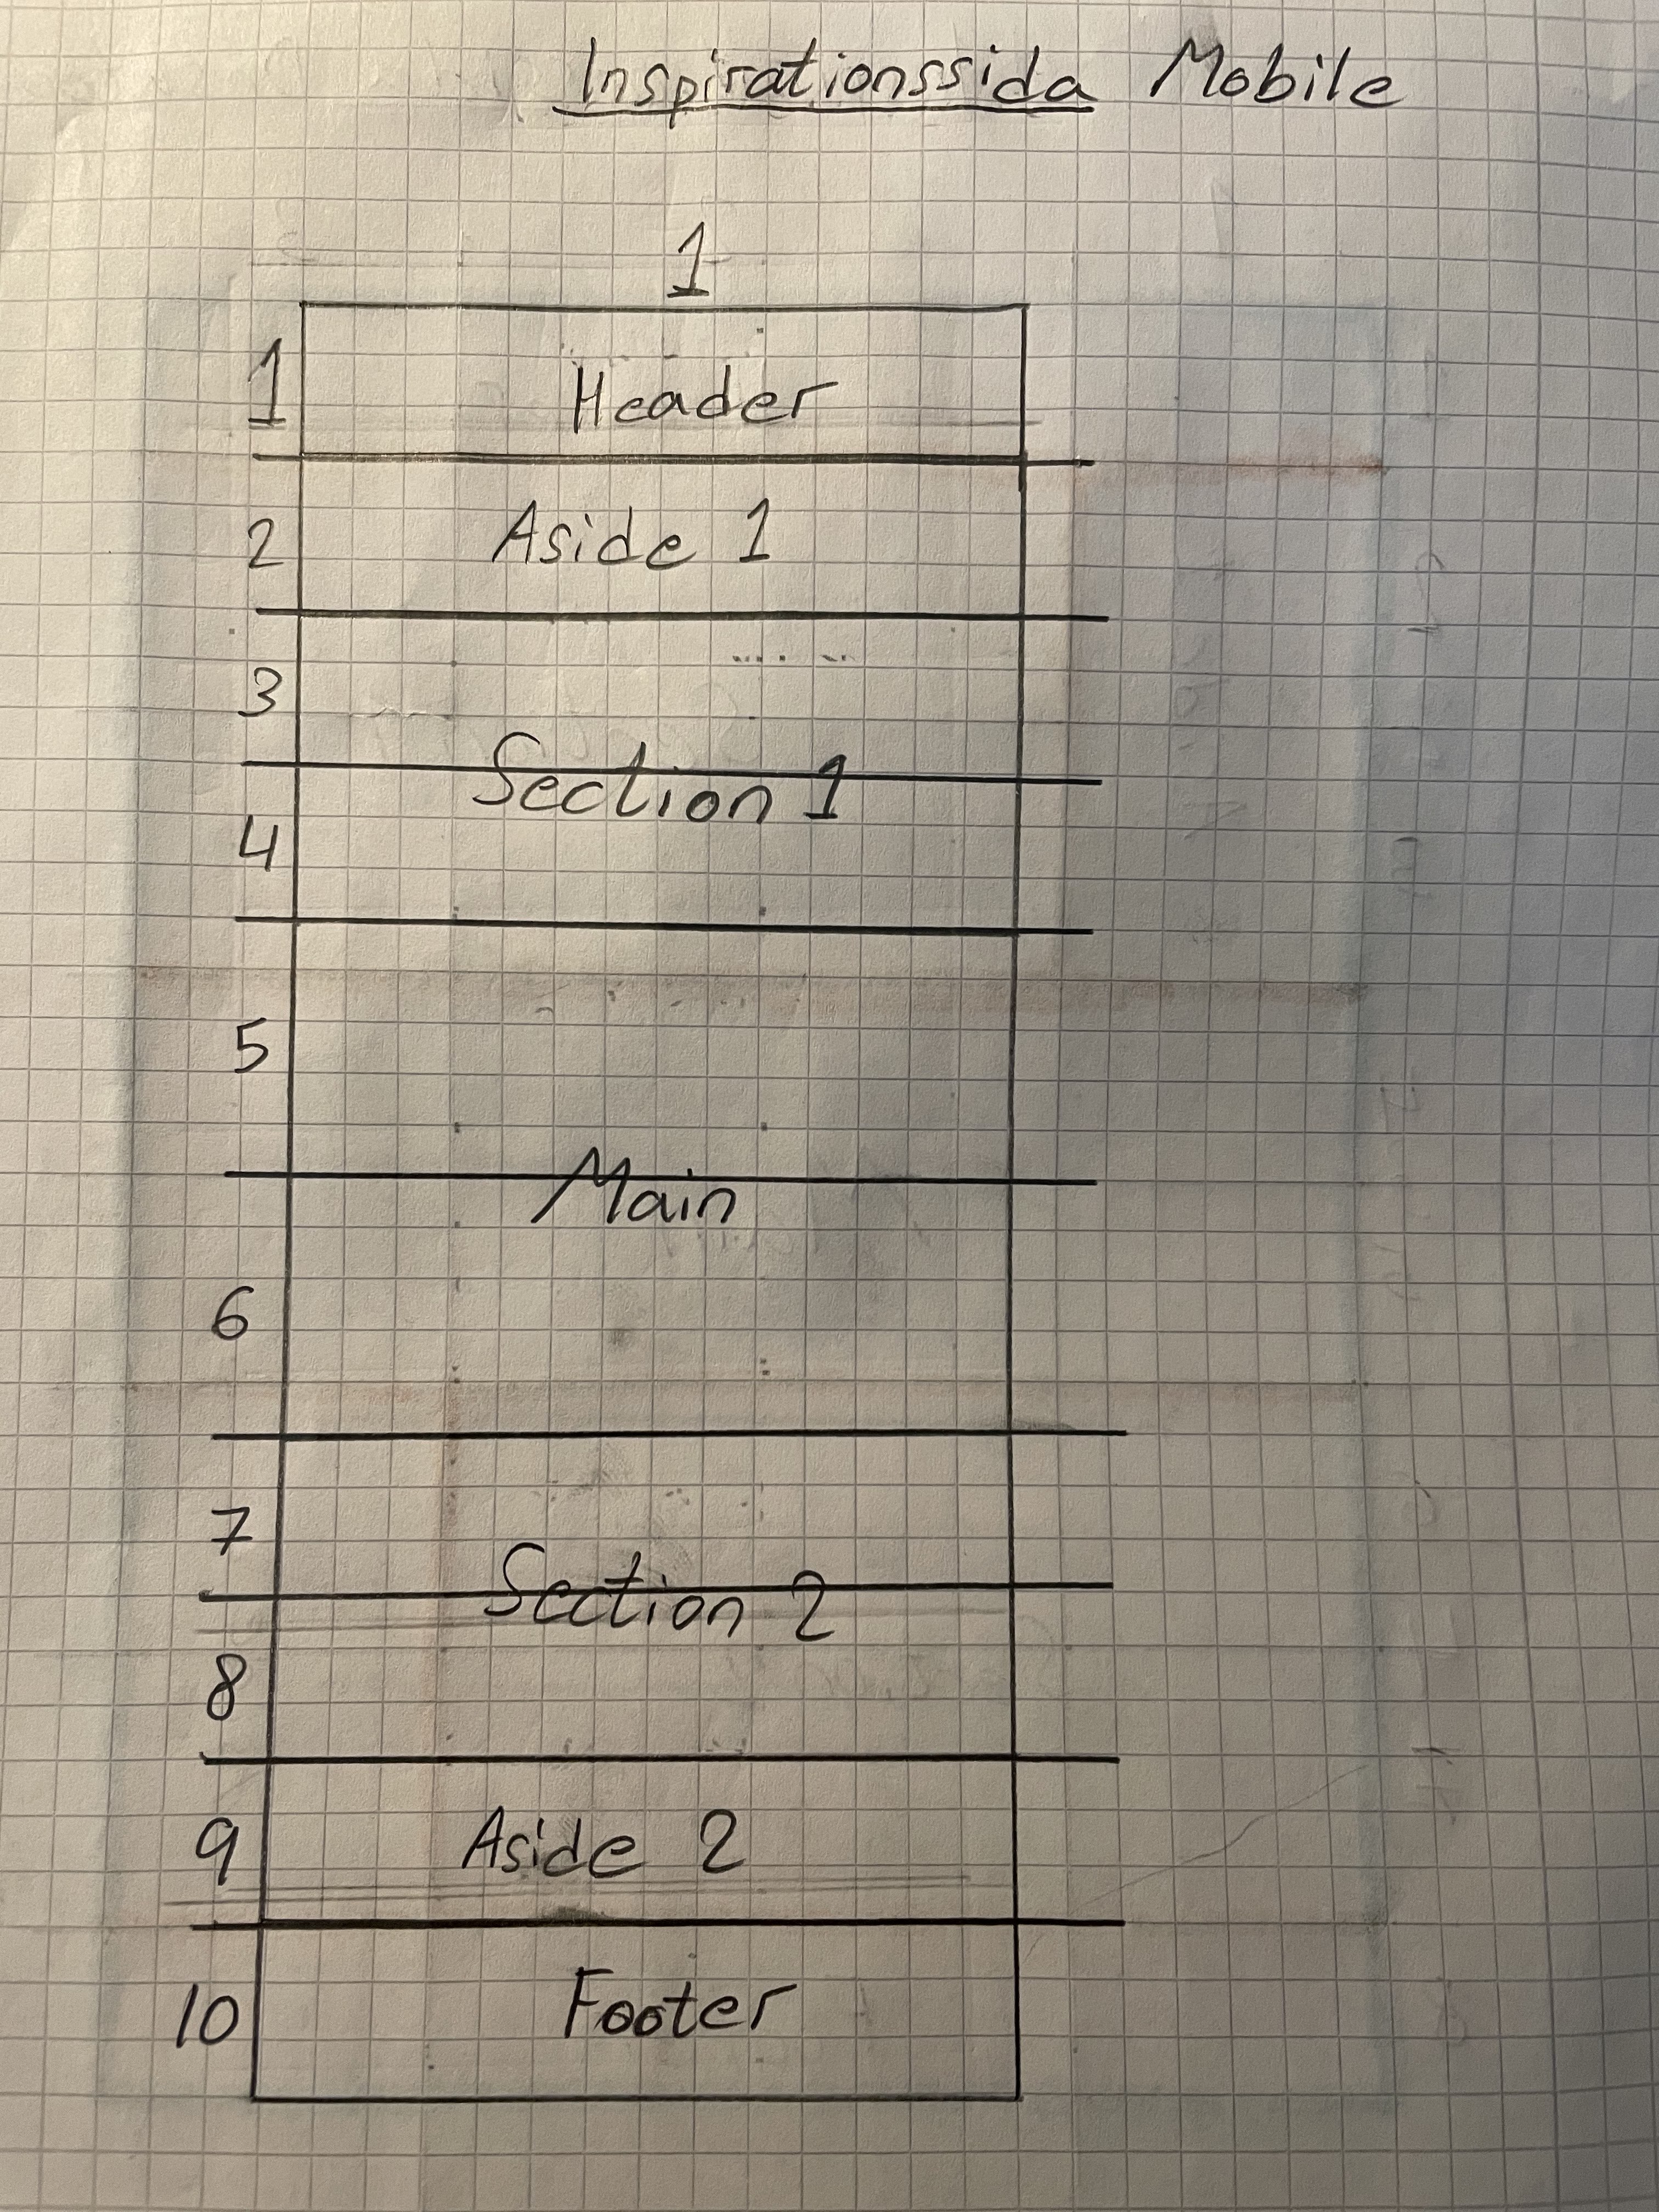 Inspirationssida Mobile
1
1 Header
2 Aside 1
3
Section 1
4
5
Main
6
7
Section 2
8
9 Aside 2
10 Footer